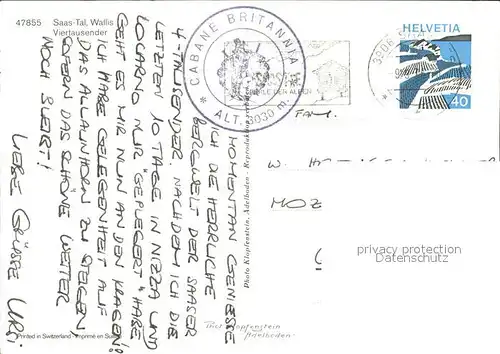 47855 Saas-Tal, Wallis
Viertausender
CABANE BRITANNIA
* ALT. 3030 m. *
HELVETIA
40
3906
PERLE DER ALPEN
MOMENTAN GENIESSE
ICH DIE HERRLICHE
BERGWELT DER SAASER
4-TAUSENDER NACHDEM ICH DIE
LETZTEN 10 TAGE IN NIZZA UND
LOCARNO NUR "GEPLEGERT" HABE
GEHT ES MIR NUN AN DEN KRAGEN!
ICH HABE GELEGENHEIT AUF
DAS ALLALINHORN ZU STEIGEN
SOFERN DAS SCHÖNE WETTER
NOCH BLEIBT!
LIEBE GRÜSSE URSI
FAM.
W.
MOZ
Photo Klopfenstein, Adelboden - Reproduktion
Thor Klopfenstein
Adelboden
Printed in Switzerland - Imprimé en Suisse
privacy protection
VERSANDHANDEL